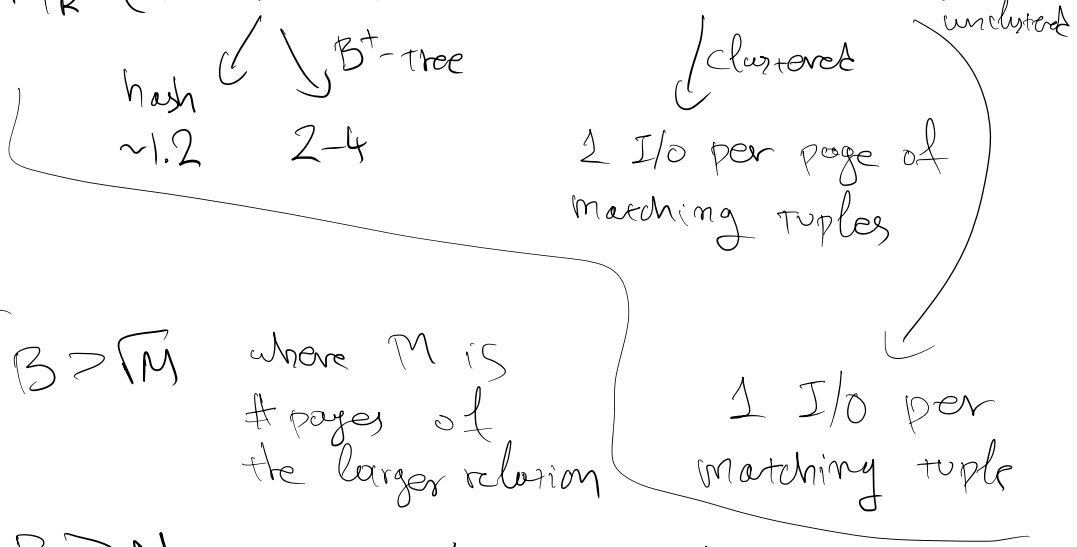 unclustered
B⁺-Tree
clustered
hash
~1.2
2-4
1 I/o per page of
matching tuples
B > √M
where M is
# pages of
the larger relation
1 I/o per
matching tuple